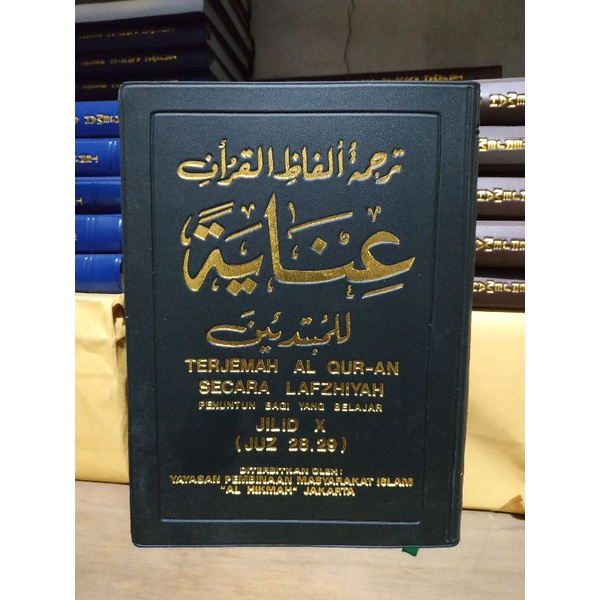 ترجمة ألفاظ القرأن
عناية
للمبتدئين
TERJEMAH AL QUR-AN
SECARA LAFZHIYAH
PENUNTUN BAGI YANG BELAJAR
JILID X
(JUZ 28,29)
DITERBITKAN OLEH:
YAYASAN PEMBINAAN MASYARAKAT ISLAM
"AL HIKMAH" JAKARTA